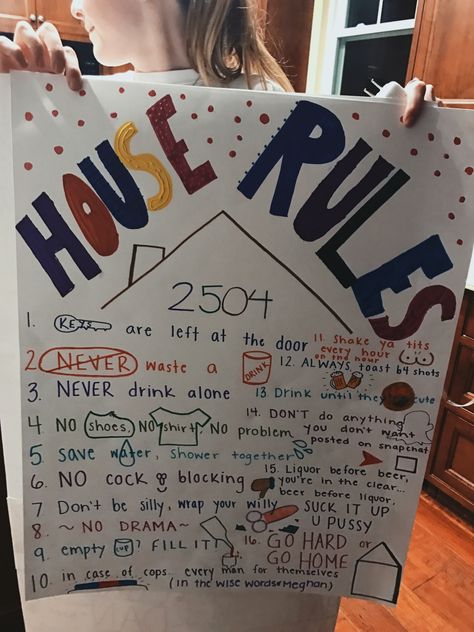 HOUSE RULES
2504
1. KEYS are left at the door
2 NEVER waste a DRINK
3. NEVER drink alone
4 NO shoes, NO shirt, NO problem
5 save water, shower together
6. NO cock blocking
7 Don't be silly, wrap your willy
8 ~ NO DRAMA ~
9 empty cup? FILL IT!
10. in case of cops.. every man for themselves
(in the wise words of Meghan)
11. Shake ya tits
every hour
on the hour
12. ALWAYS toast b4 shots
13 Drink until they're cute
14. DON'T do anything
you don't want
posted on snapchat
15. Liquor before beer,
you're in the clear...
beer before liquor,
SUCK IT UP
U PUSSY
16. GO HARD or
GO HOME